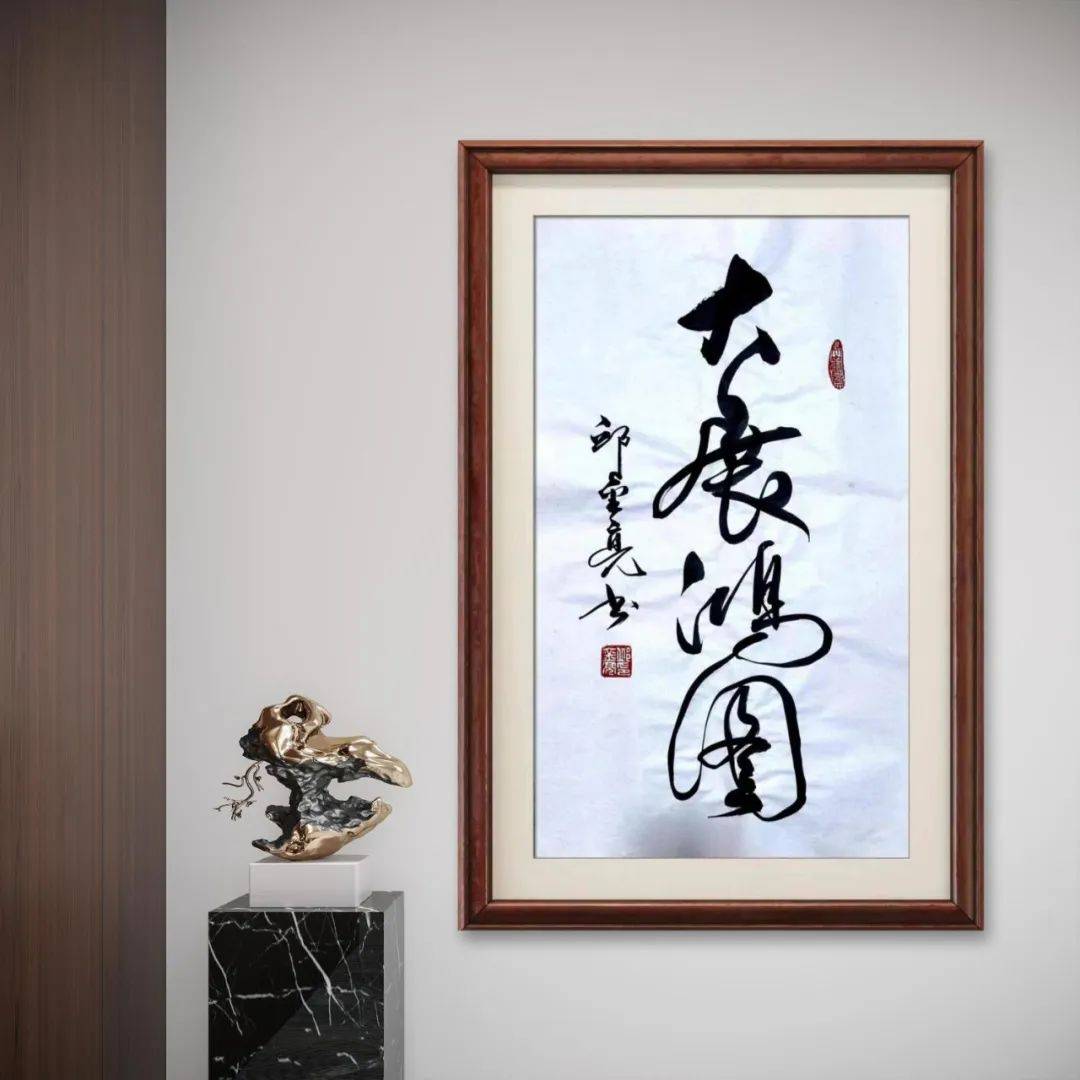 大展鸿图
邱金亮书